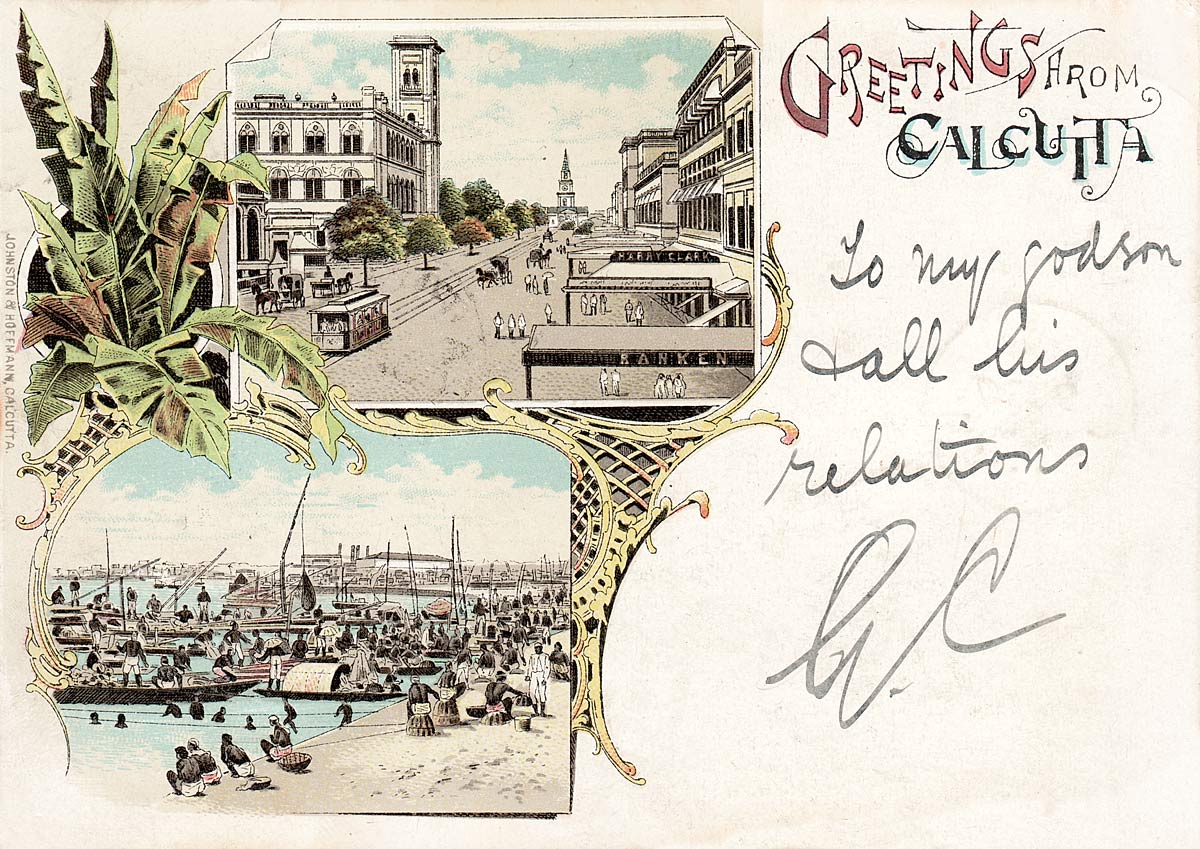 GREETINGS FROM
CALCUTTA
To my godson
& all his
relations
G. C
HARRY CLARK
RANKEN
JOHNSTON & HOFFMANN, CALCUTTA.